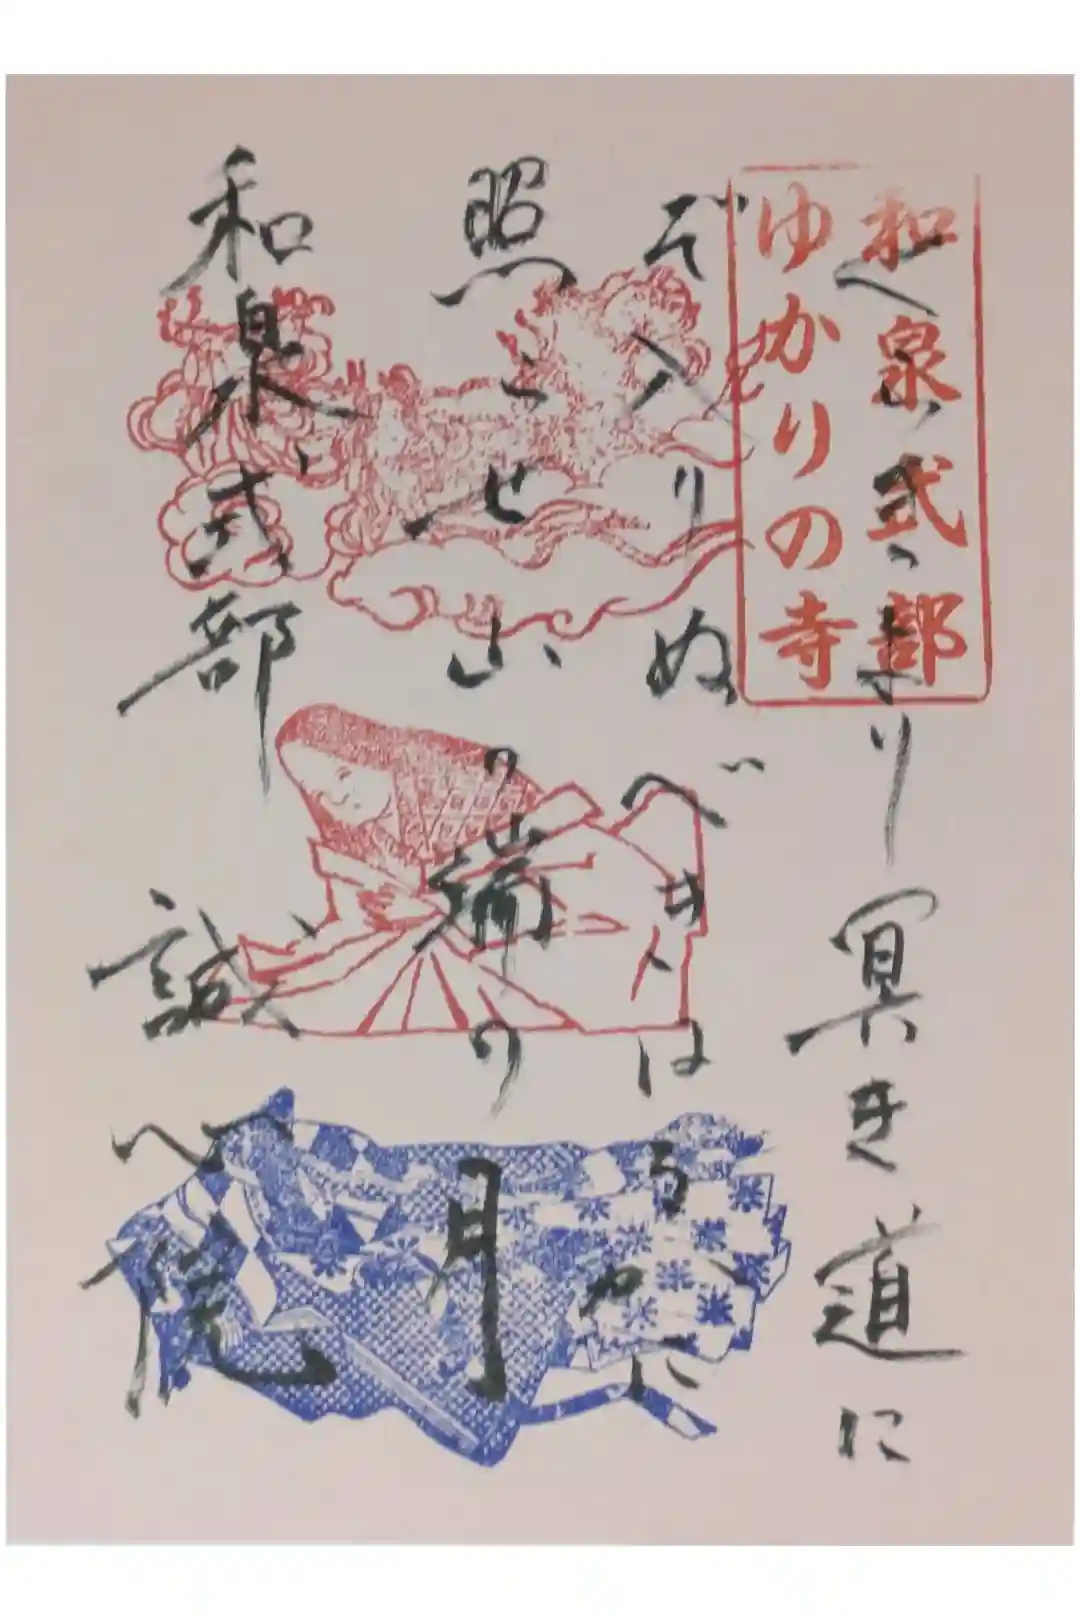 和泉式部
ゆかりの寺
くらきより 冥き道に
ぞ入りぬべきはるかに
照らせ山の端の月
和泉式部 誠心院